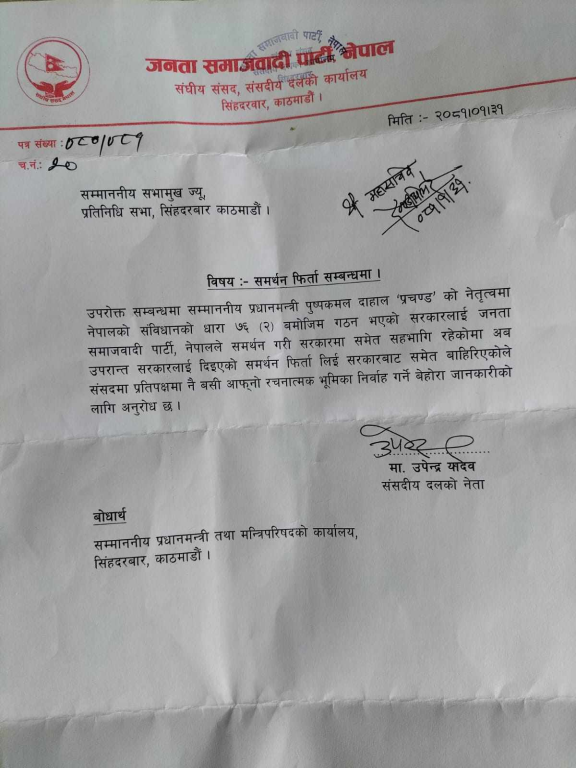 जनता समाजवादी पार्टी, नेपाल
संघीय संसद, संसदीय दलको कार्यालय
सिंहदरबार, काठमाडौं ।
मिति :- २०८१०१३१
पत्र संख्या : ०८०/०८१
च.नं.: २०
श्री महासचिव
०८१/१/३१
सम्माननीय सभामुख ज्यू,
प्रतिनिधि सभा, सिंहदरबार काठमाडौं ।
विषय :- समर्थन फिर्ता सम्बन्धमा ।
उपरोक्त सम्बन्धमा सम्माननीय प्रधानमन्त्री पुष्पकमल दाहाल 'प्रचण्ड' को नेतृत्वमा
नेपालको संविधानको धारा ७६ (२) बमोजिम गठन भएको सरकारलाई जनता
समाजवादी पार्टी, नेपालले समर्थन गरी सरकारमा समेत सहभागि रहेकोमा अब
उपरान्त सरकारलाई दिइएको समर्थन फिर्ता लिई सरकारबाट समेत बाहिरिएकोले
संसदमा प्रतिपक्षमा नै बसी आफ्नो रचनात्मक भूमिका निर्वाह गर्ने बेहोरा जानकारीको
लागि अनुरोध छ ।
मा. उपेन्द्र यादव
संसदीय दलको नेता
बोधार्थ
सम्माननीय प्रधानमन्त्री तथा मन्त्रिपरिषदको कार्यालय,
सिंहदरबार, काठमाडौं ।